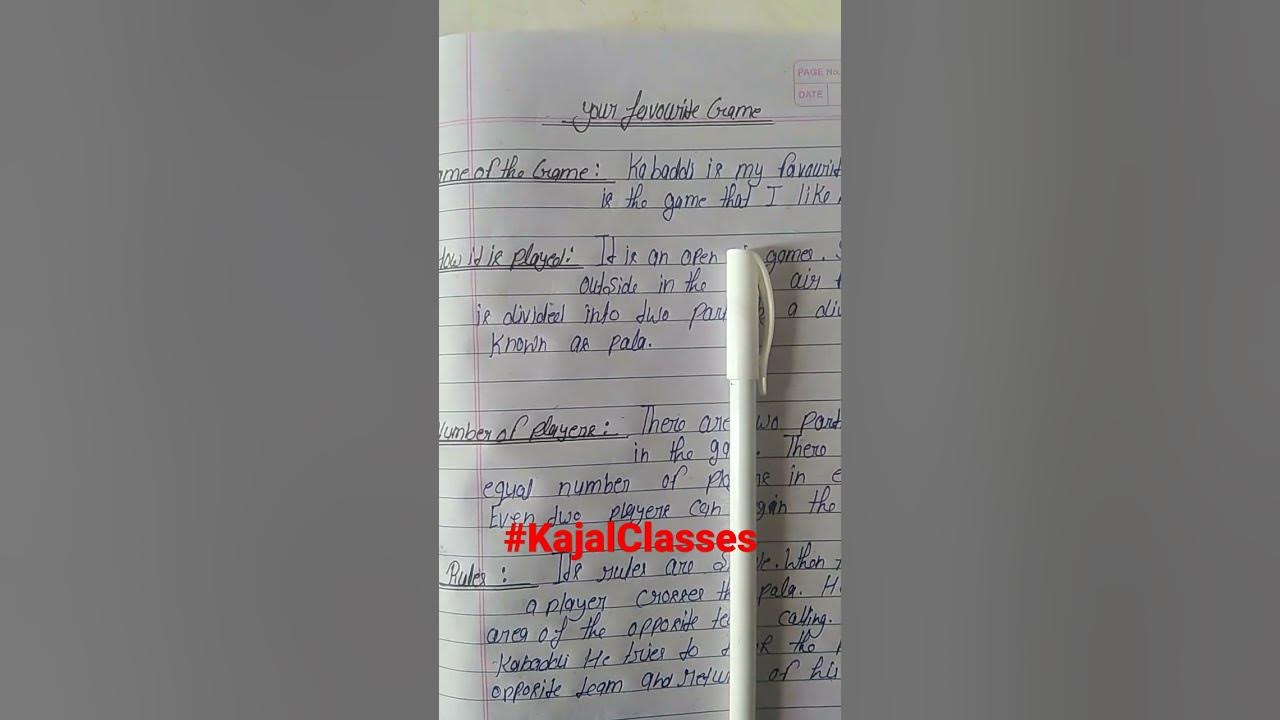 PAGE No.
DATE
Your favourite Game
ame of the Game: Kabaddi is my favourit
is the game that I like
How it is played: It is an open games.
outside in the air
is divided into two par a di
known as pala.
Number of players: There are two part
in the ga. There
equal number of pla in e
Even two players can gin the
#KajalClasses
Rules: Its rules are . When
a player crosses th pala. H
area of the opposite te calling.
Kabaddi He tries to the
opposite team and retur of his